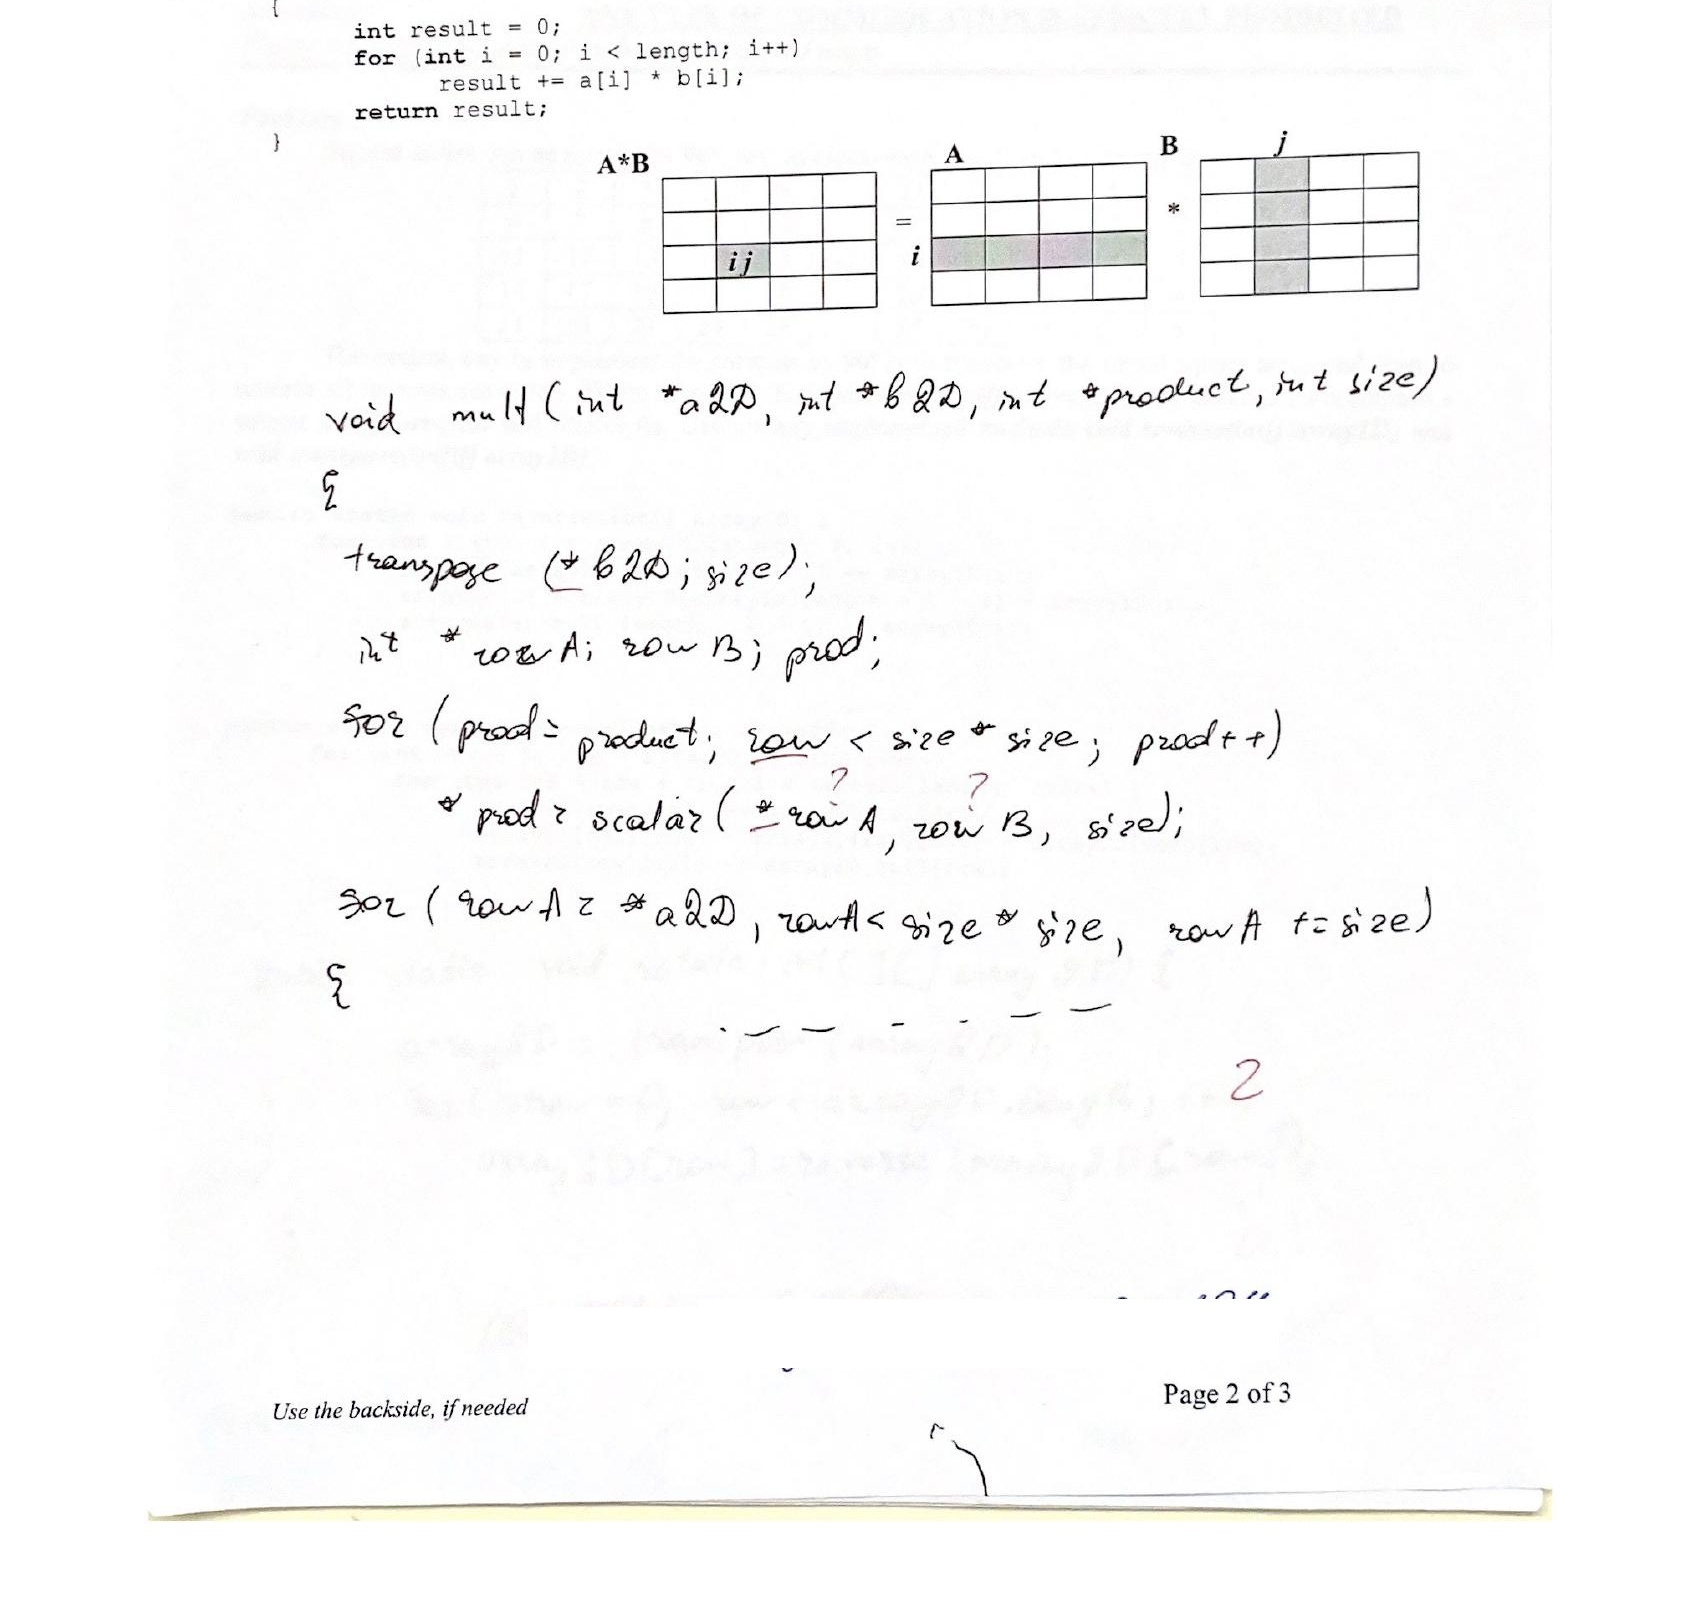 {
int result = 0;
for (int i = 0; i < length; i++)
result += a[i] * b[i];
return result;
}
A*B
A
B
j
=
*
i
ij
void mult (int *a2D, int *b2D, int *product, int size)
{
transpose (* b2D; size);
int * rowA; rowB; prod;
for (prod = product; row < size * size; prod++)
? ?
* prod = scalar (* rowA, rowB, size);
for (rowA = *a2D, rowA < size * size, rowA += size)
{
2
Use the backside, if needed
Page 2 of 3